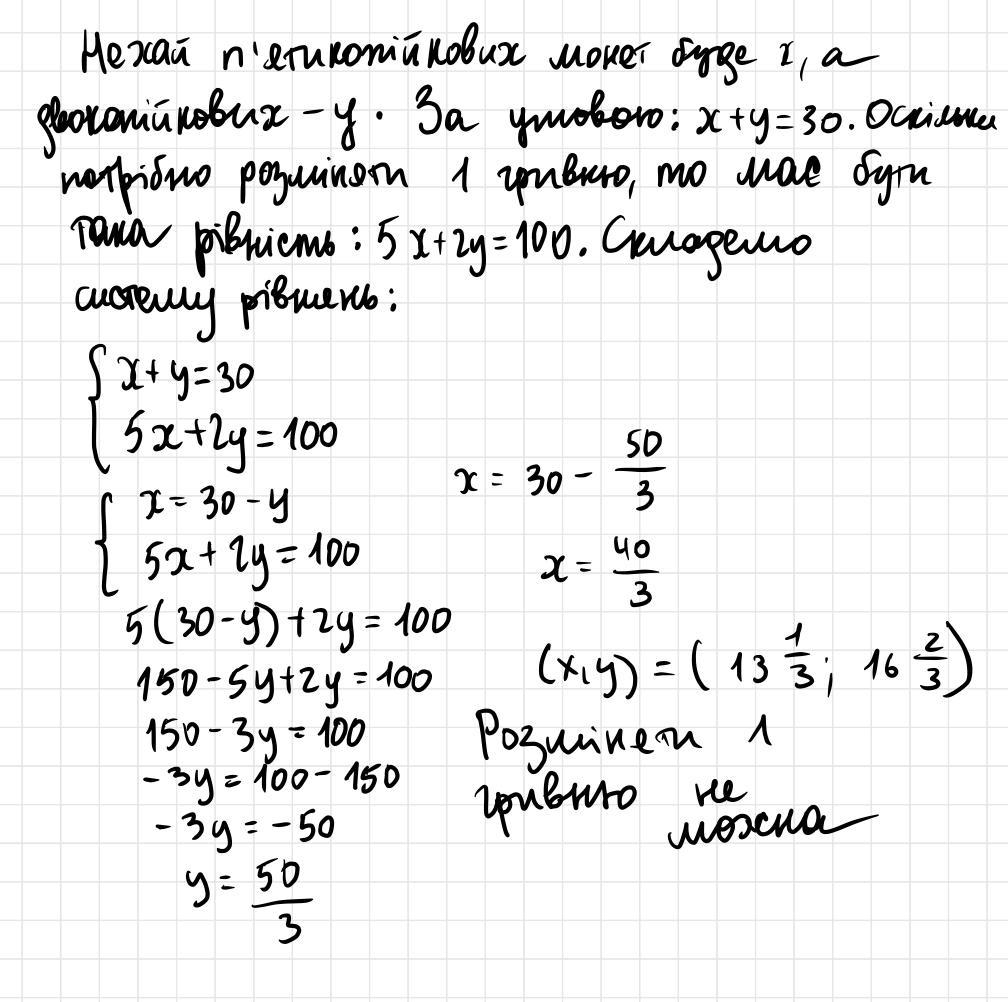 Нехай п'ятикопійкових монет буде x, а
двокопійкових - y. За умовою: x+y=30. Оскільки
потрібно розміняти 1 гривню, то має бути
така рівність: 5x+2y=100. Складемо
систему рівнянь:
{ x+y=30
5x+2y=100
{ x=30-y
5x+2y=100
5(30-y)+2y=100
150-5y+2y=100
150-3y=100
-3y=100-150
-3y=-50
y=50/3
x=30-50/3
x=40/3
(x,y)=(13 1/3; 16 2/3)
Розміняти 1
гривню не
можна